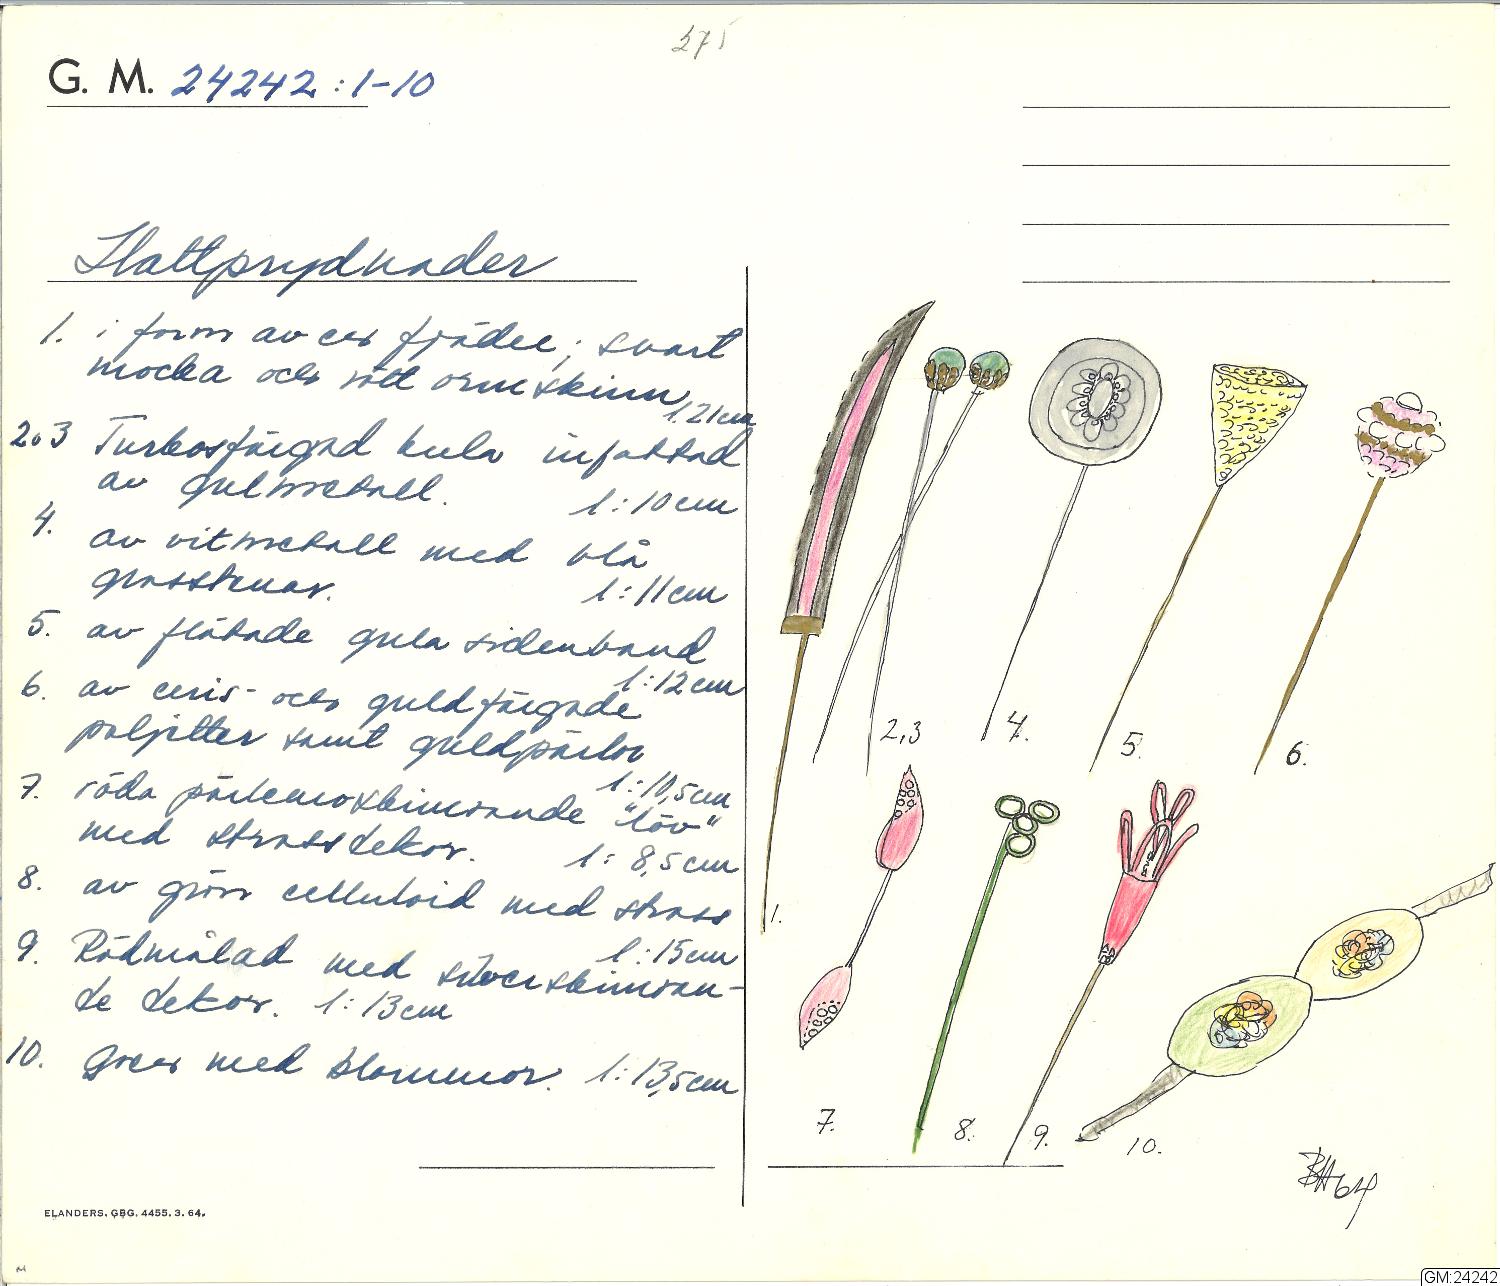 275
G. M. 24242:1-10
Hattprydnader
1. i form av en fjäder; svart
mocka och rött ormskinn
l. 21cm
2,3 Turkosfärgad kula infattad
av gul metall.
l: 10 cm
4. av vit metall med blå
glasstenar.
l: 11 cm
5. av flätade gula sidenband
l: 12 cm
6. av ceris- och guldfärgade
paljetter samt guldpärlor
l: 10,5cm
7. röda pärlemorskimrande "löv"
med strassdekor.
l: 8,5 cm
8. av grön celluloid med strass
l: 15cm
9. Rödmålad med silverskimran-
de dekor. l: 13cm
10. Gren med blommor. l: 13,5cm
1.
2,3
4.
5.
6.
7.
8.
9.
10.
BH 64
ELANDERS. GBG. 4455. 3. 64.
GM:24242